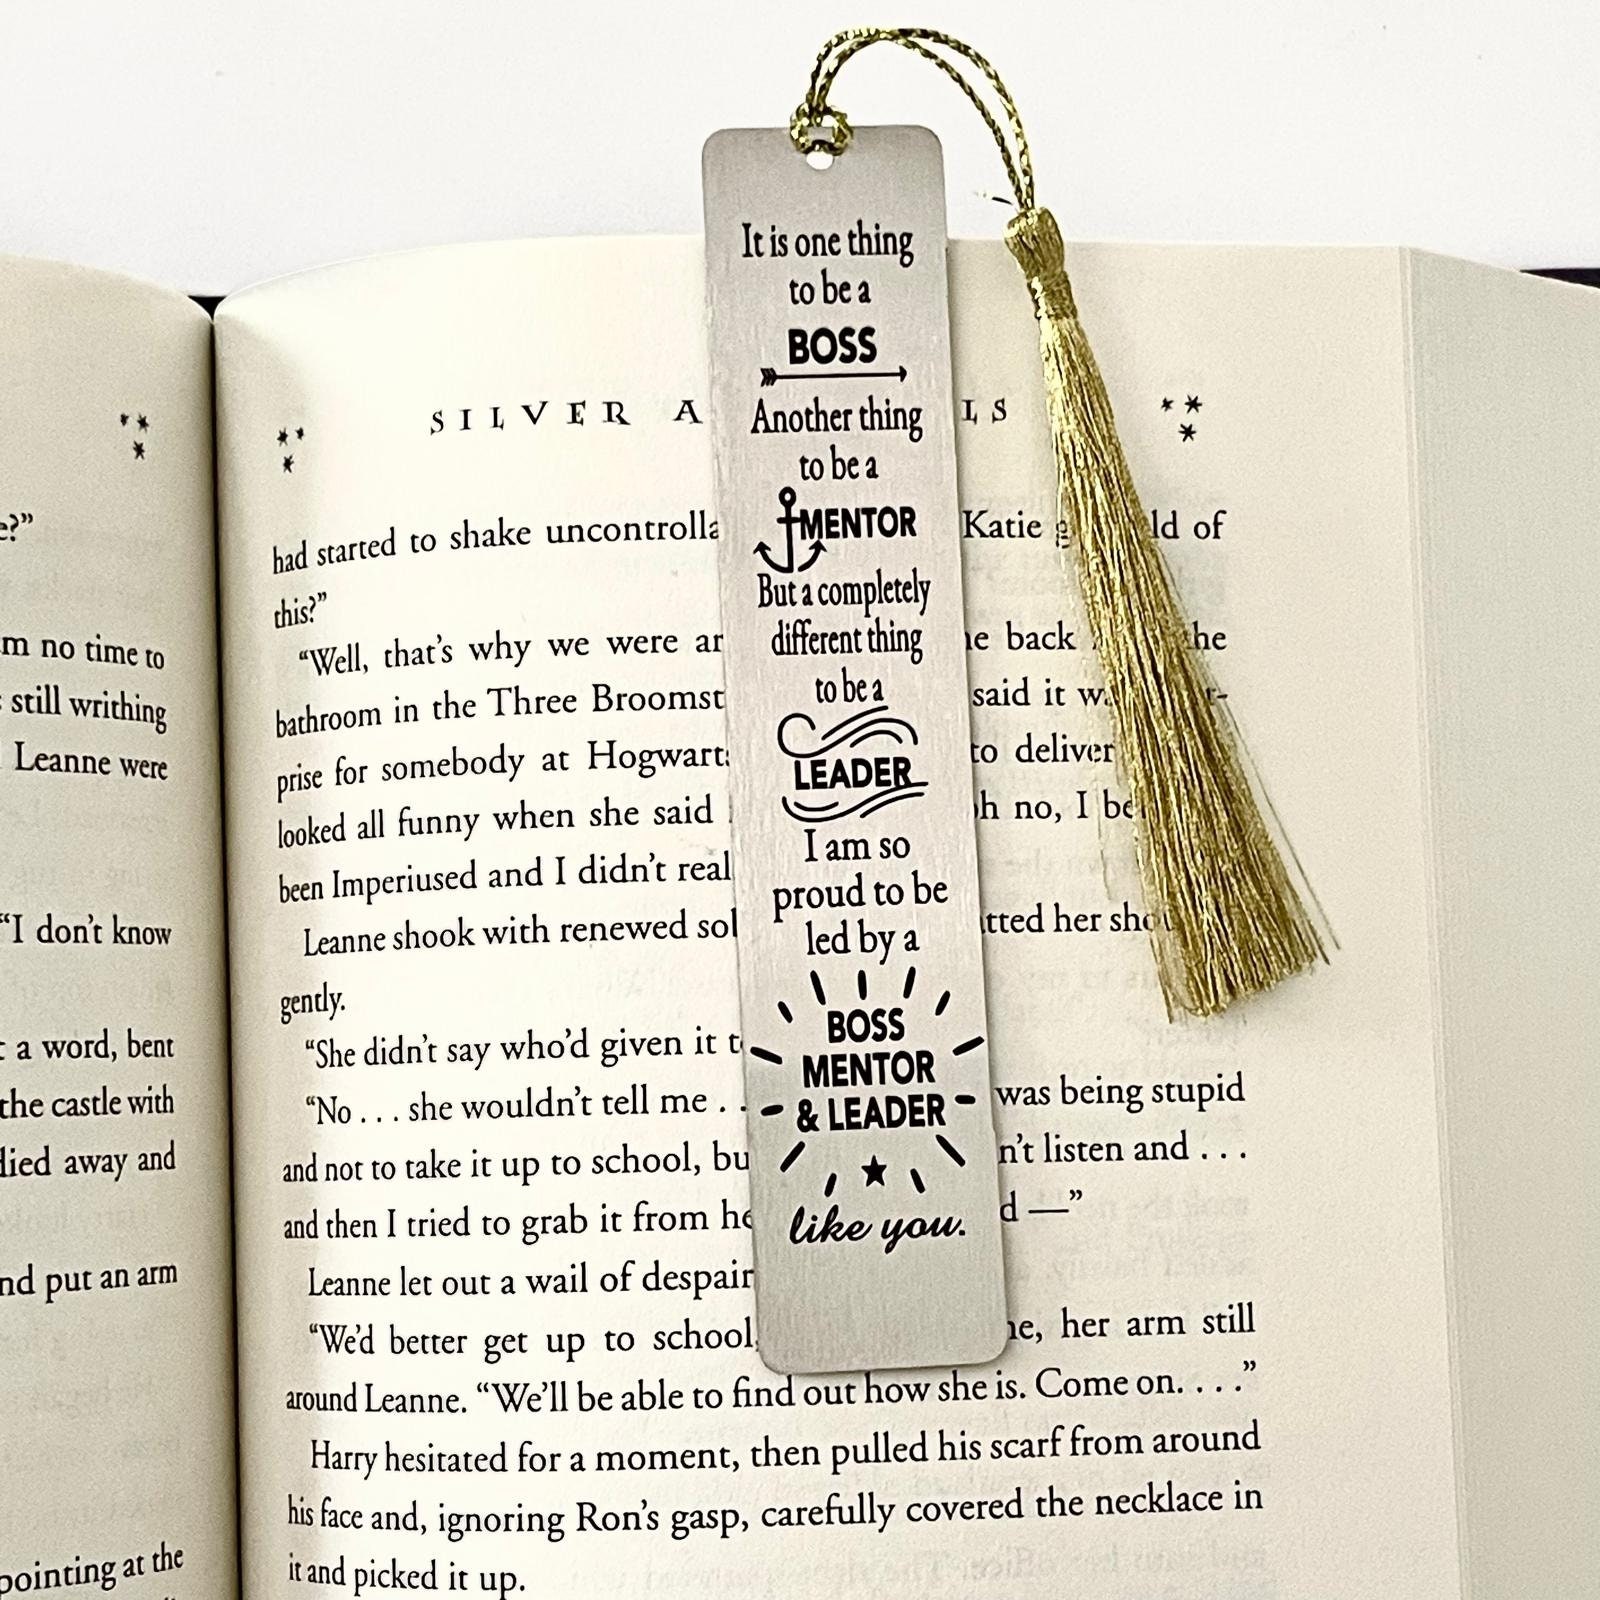 It is one thing
to be a
BOSS
Another thing
to be a
MENTOR
But a completely
different thing
to be a
LEADER
I am so
proud to be
led by a
BOSS
MENTOR
& LEADER
like you.
SILVER
had started to shake Katie of
this?”
“Well, that’s why we were back the
bathroom in the Three said it
prise for somebody at to deliver
looked all funny when she said no, I
been Imperiused and I didn’t
Leanne shook with renewed her
gently.
“She didn’t say who’d given it
“No . . . she wouldn’t tell me . . was being stupid
and not to take it up to school, listen and . . .
and then I tried to grab it from —”
Leanne let out a wail of despair
“We’d better get up to school, her arm still
around Leanne. “We’ll be able to find out how she is. Come on. . . .”
Harry hesitated for a moment, then pulled his scarf from around
his face and, ignoring Ron’s gasp, carefully covered the necklace in
it and picked it up.
no time to
still writhing
Leanne were
“I don’t know
a word, bent
the castle with
away and
put an arm
pointing at the